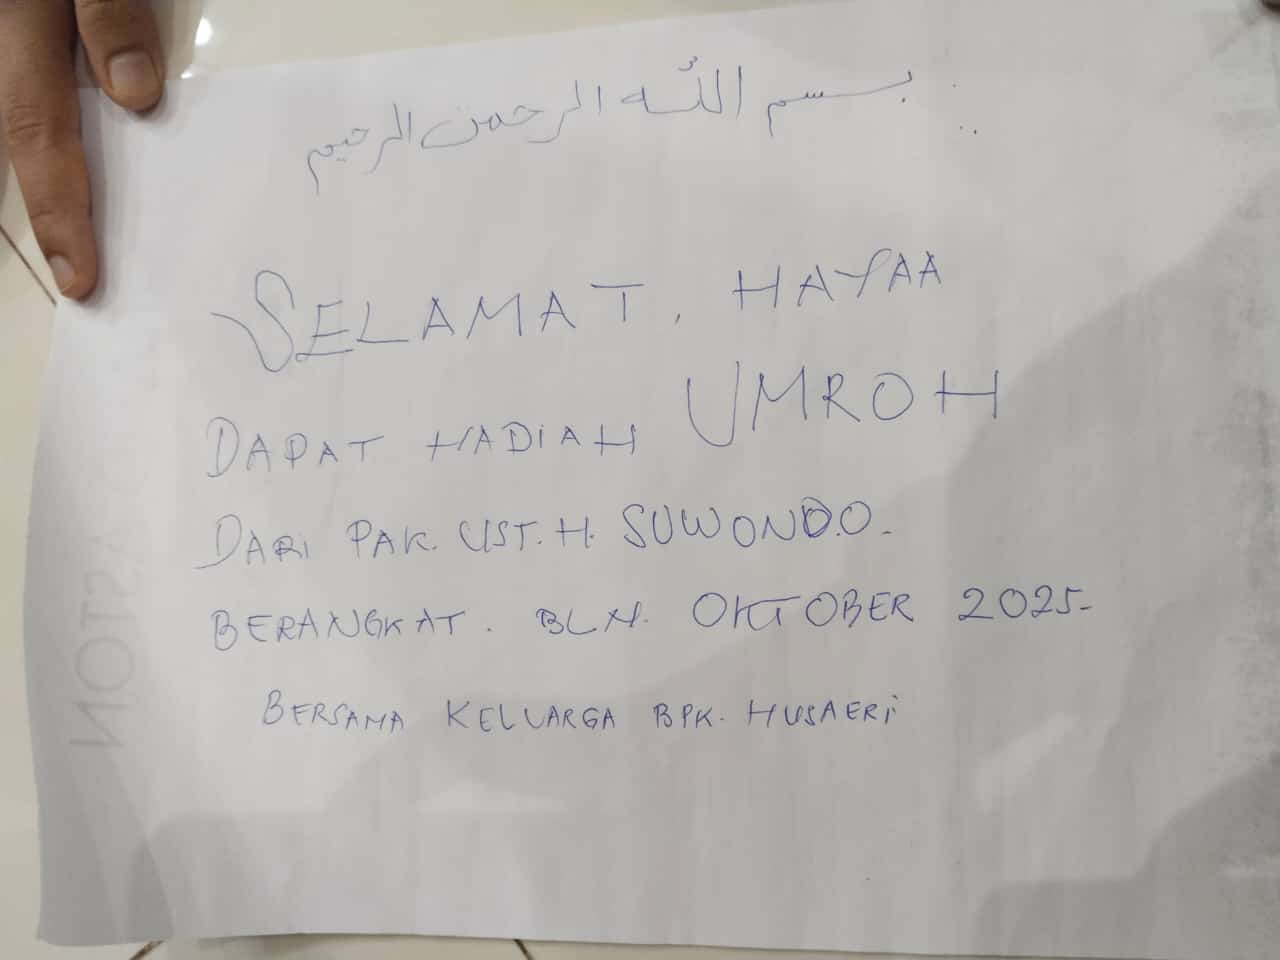 بسم الله الرحمن الرحيم
SELAMAT, HAYAA
DAPAT HADIAH UMROH
DARI PAK. UST. H. SUWONDO.
BERANGKAT. BLN. OKTOBER 2025-
BERSAMA KELUARGA BPK. HUSAERI